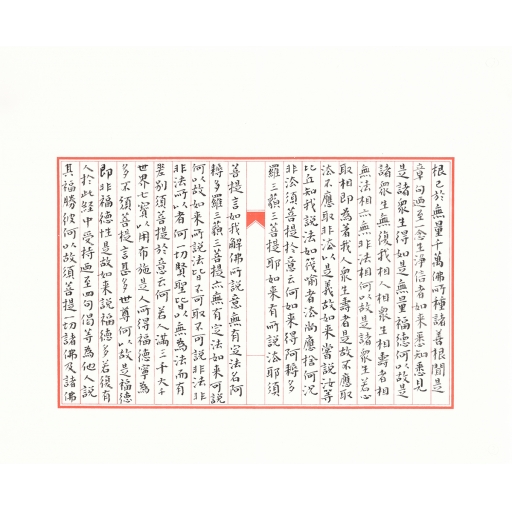 根已於無量千萬佛所種諸善根聞是
章句乃至一念生淨信者如來悉知悉見
是諸眾生得如是無量福德何以故是
諸眾生無復我相人相眾生相壽者相
無法相亦無非法相何以故是諸眾生若心
取相即為著我人眾生壽者是故不應取
法不應取非法以是義故如來常說汝等
比丘知我說法如筏喻者法尚應捨何況
非法須菩提於意云何如來得阿耨多
羅三藐三菩提耶如來有所說法耶須
菩提言如我解佛所說意無有定法名阿
耨多羅三藐三菩提亦無有定法如來可說
何以故如來所說法皆不可取不可說非法非
非法所以者何一切賢聖皆以無為法而有
差別須菩提於意云何若人滿三千大千
世界七寶以用布施是人所得福德寧為
多不須菩提言甚多世尊何以故是福德
即非福德性是故如來說福德多若復有
人於此經中受持乃至四句偈等為他人說
其福勝彼何以故須菩提一切諸佛及諸佛